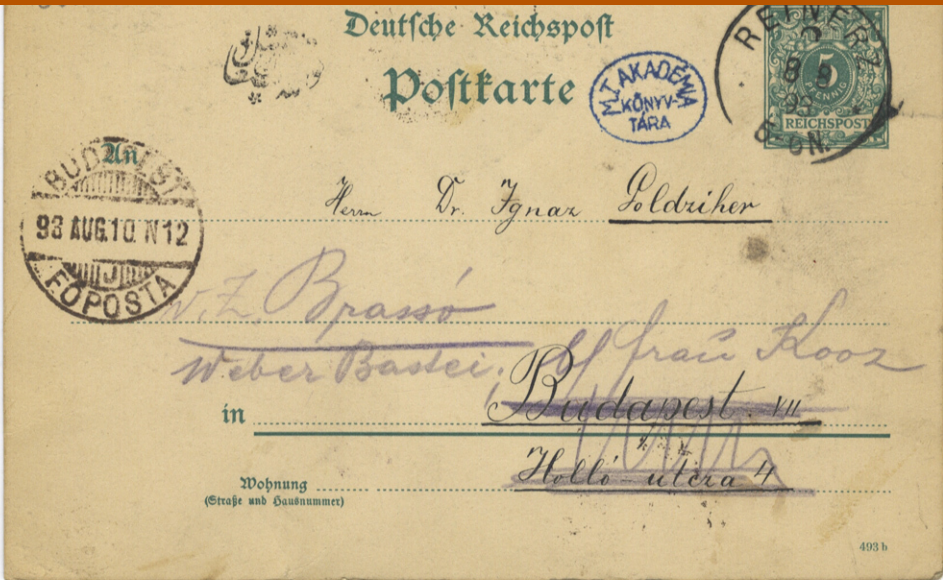 Deutsche Reichspost
Postkarte
M.T. AKADÉMIA
KÖNYV-
TÁRA
REINERZ
8 8
93
5-6N.
5
PFENNIG
REICHSPOST
An
BUDAPEST
93 AUG.10 N12
J
FŐPOSTA
Herrn Dr. Ignaz Goldziher
Brassó
Weber Bastei, frau Kooz
in Budapest. VII
Holló-utcza 4
Wohnung
(Straße und Hausnummer)
493 b